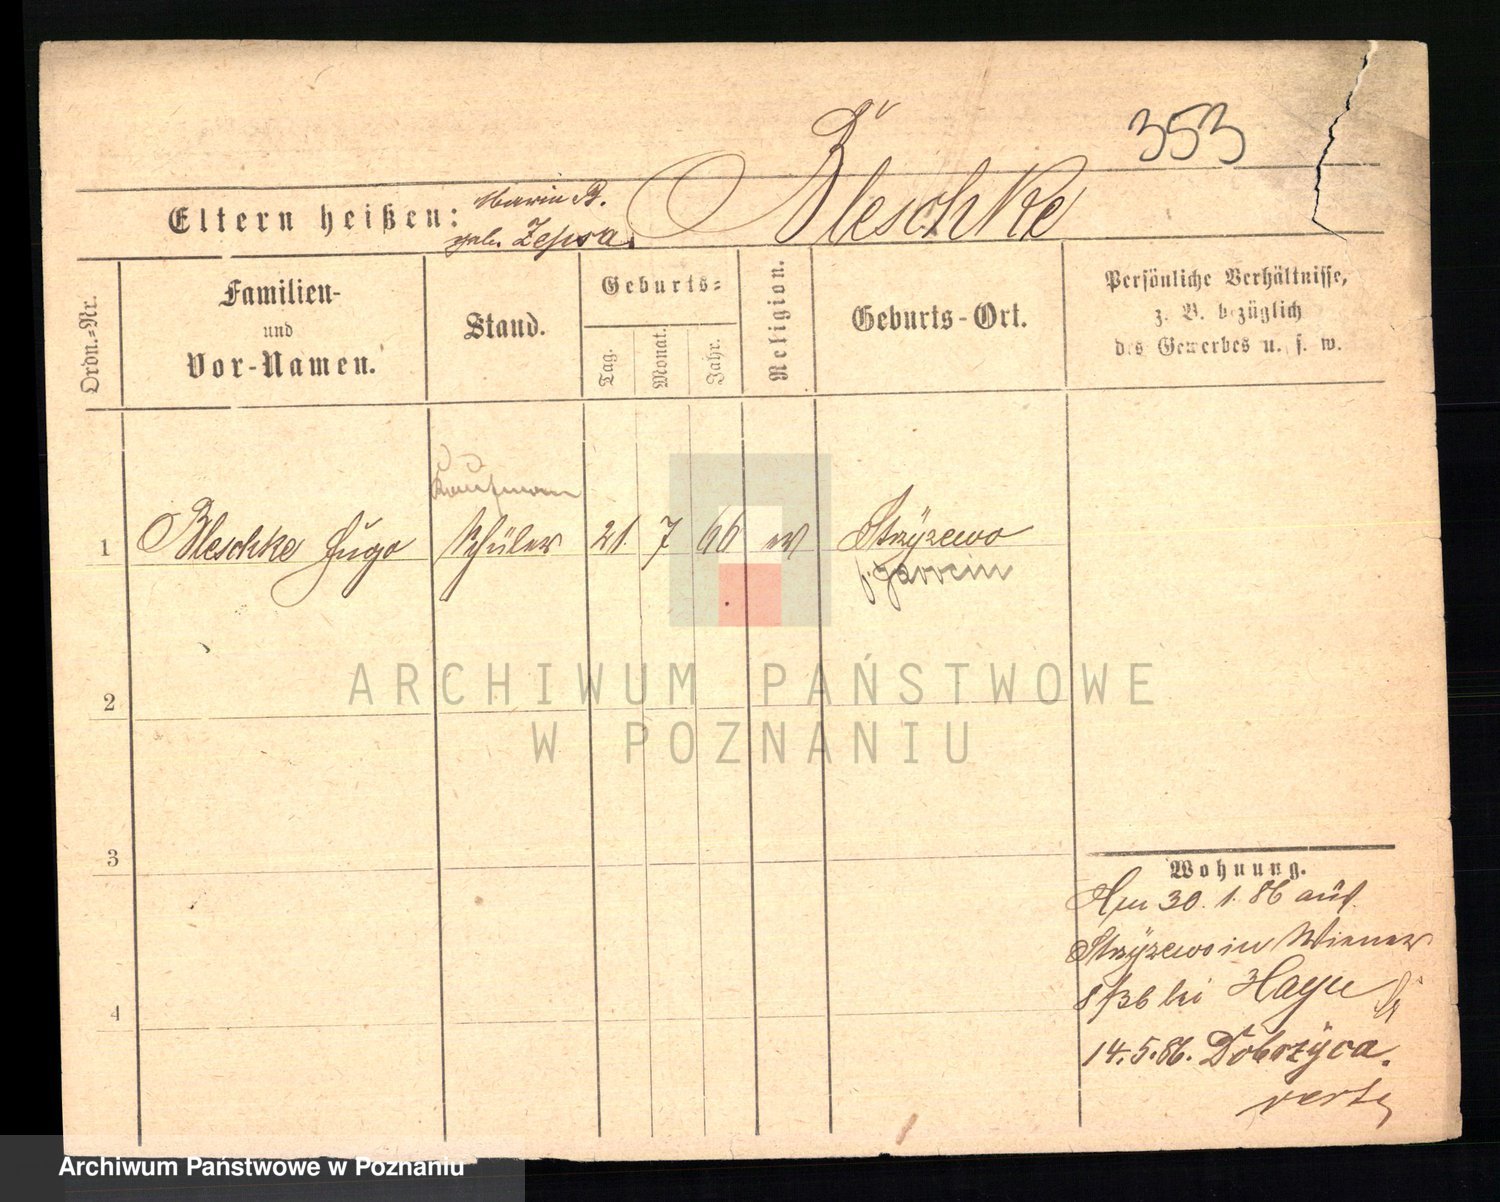 353
Bleschke
Eltern heißen: Marie B.
geb. Zepsa.
Ordn.=Nr.
Familien-
und
Vor-Namen.
Stand.
Geburts=
Tag.
Monat.
Jahr.
Religion.
Geburts-Ort.
Persönliche Verhältnisse,
z. B. bezüglich
des Gewerbes u. s. w.
Kaufmann
1 Bleschke Hugo Schüler 21 7 66 ev Stryzewo
2
3
4
Wohnung.
30. 1. 86 aus
Stryzewo in Wiener
8/36 bei
14.5.86. Dobrzyca.
verte
ARCHIWUM PAŃSTWOWE
W POZNANIU
Archiwum Państwowe w Poznaniu